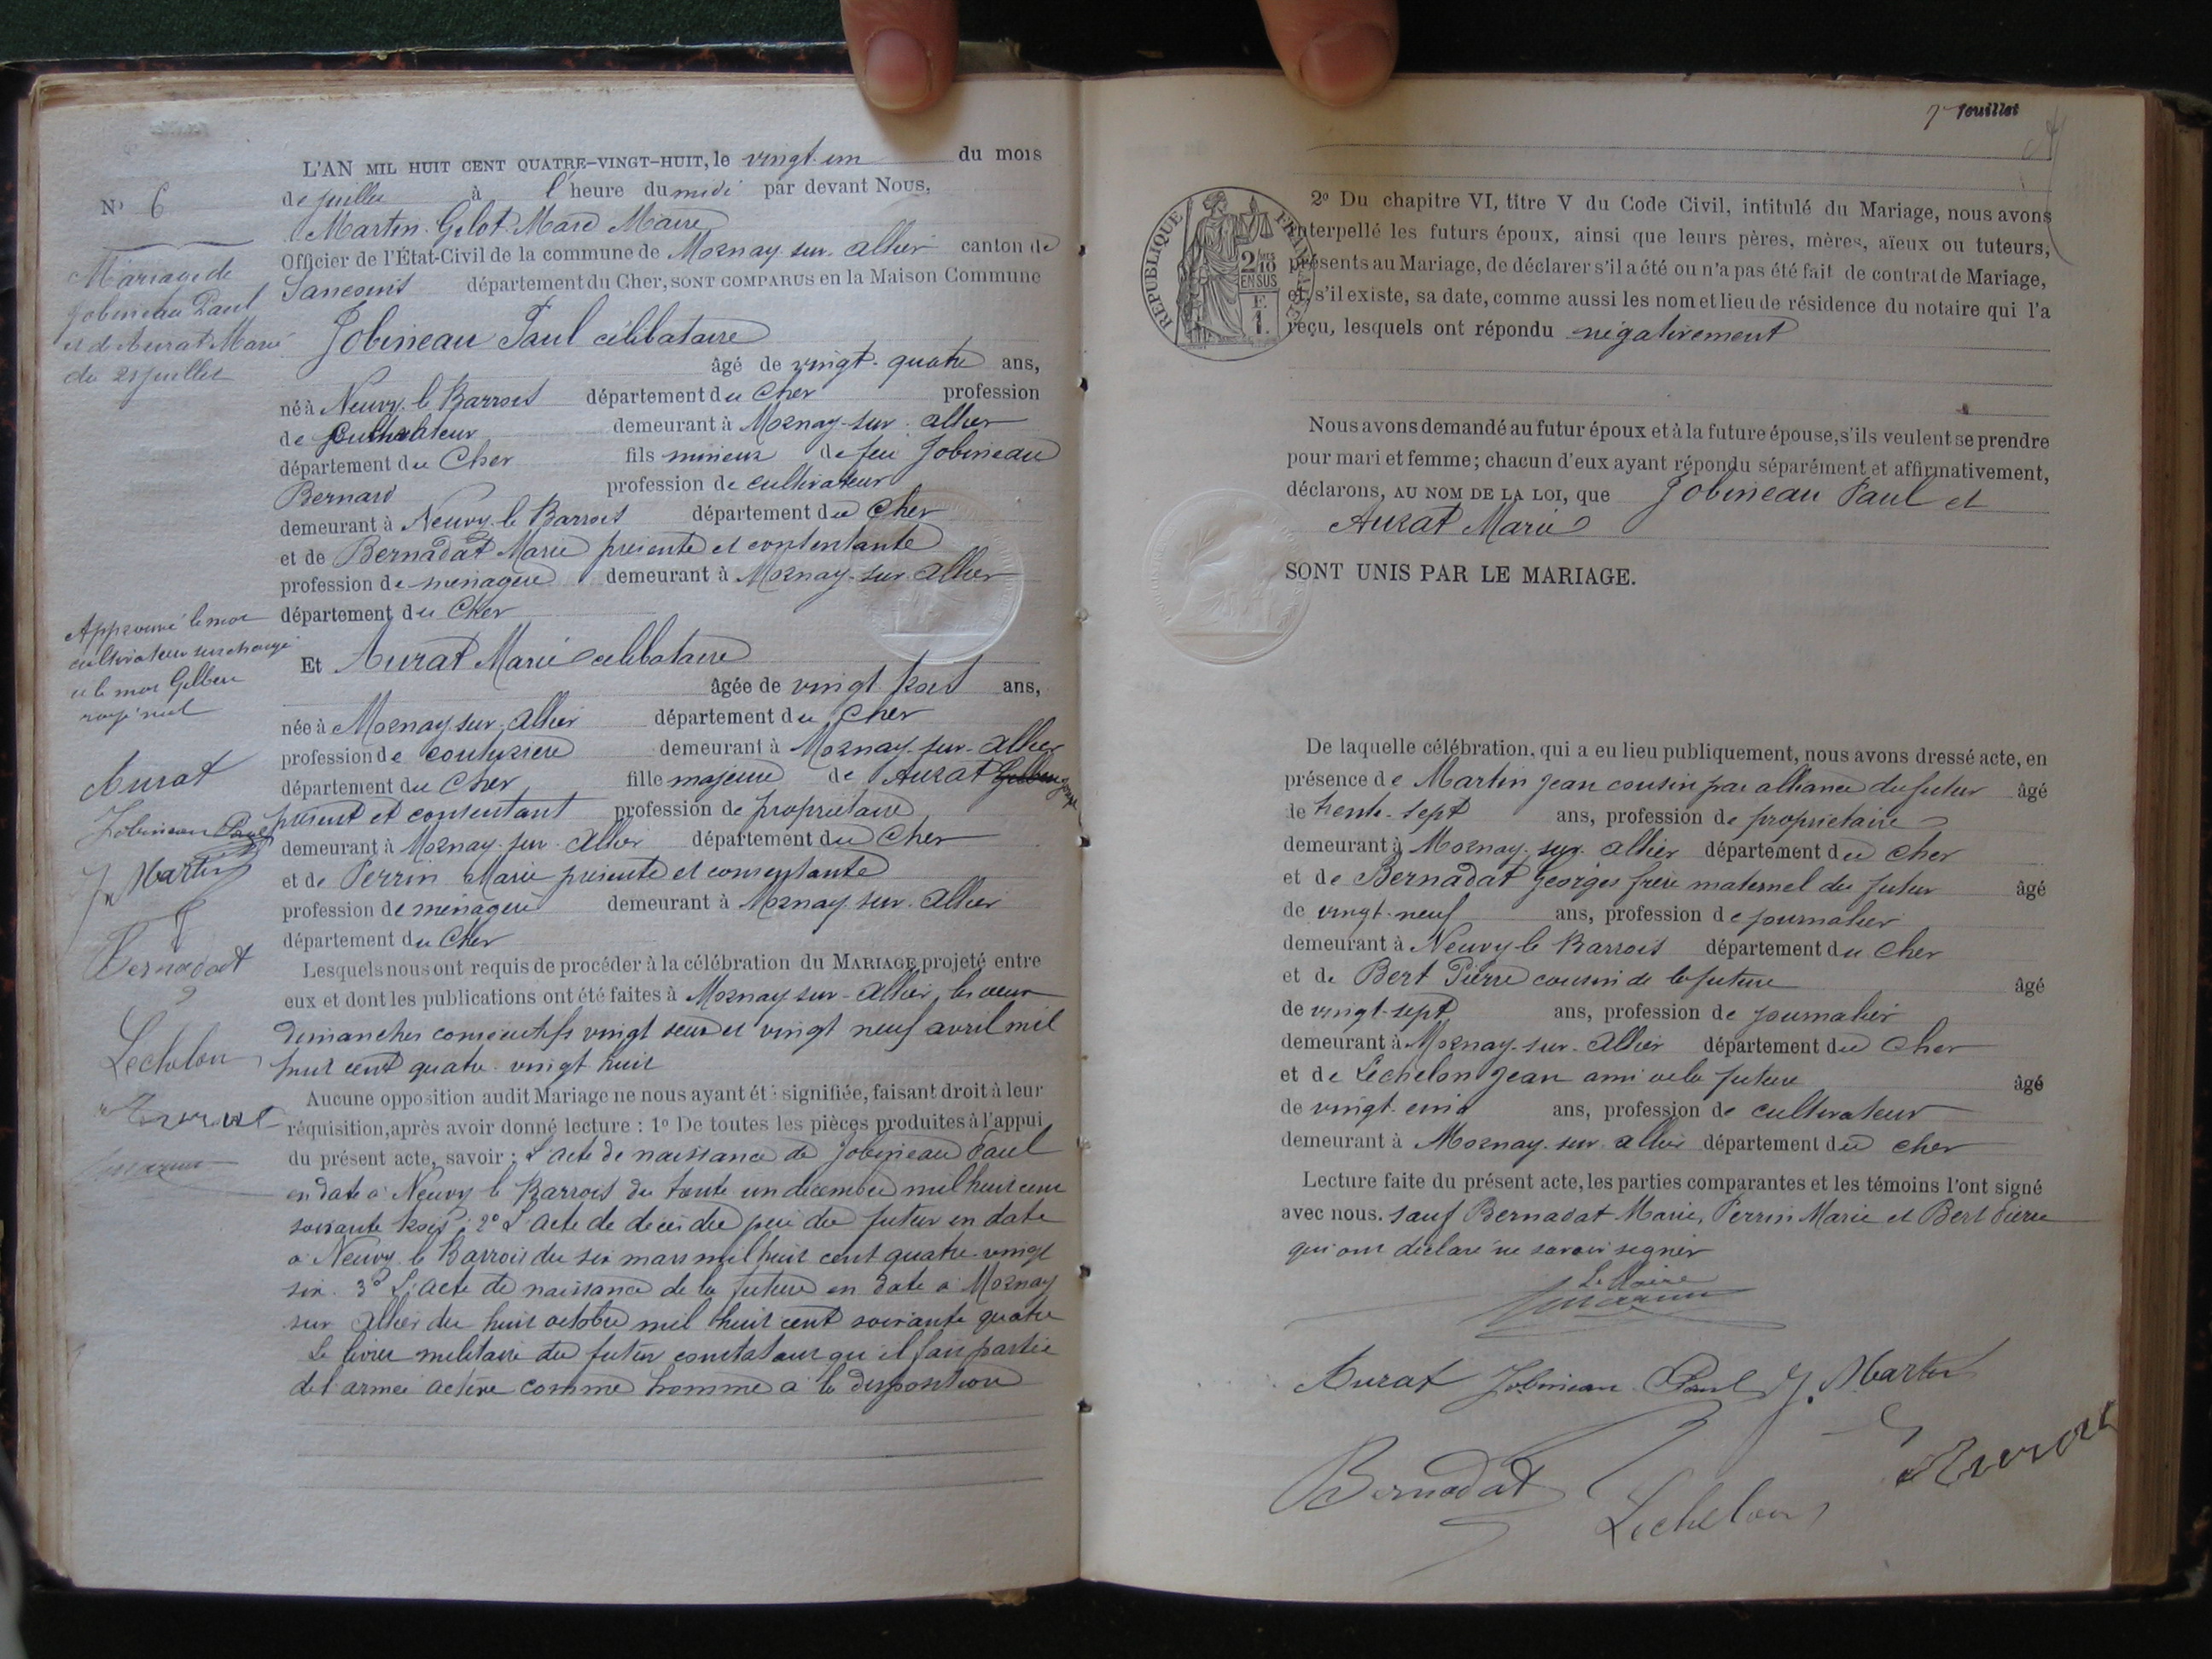 N° 6
Mariage de
Jobineau Paul
et de Aurat Marie
du 21 juillet
L'AN MIL HUIT CENT QUATRE-VINGT-HUIT, le vingt un du mois
de juillet à l'heure du midi par devant NOUS,
Martin Gilot Mard Maire
Officier de l'État-Civil de la commune de Mornay sur Allier canton de
Sancoins département du Cher, SONT COMPARUS en la Maison Commune
Jobineau Paul célibataire
âgé de vingt-quatre ans,
né à Neuvy le Barrois département du Cher profession
de cultivateur demeurant à Mornay-sur-Allier
département du Cher fils mineur de feu Jobineau
Bernard profession de cultivateur
demeurant à Neuvy le Barrois département du Cher
et de Bernadat Marie présente et consentante
profession de ménagère demeurant à Mornay-sur-Allier
département du Cher
Approuvé le mot
cultivateur surchargé
et le mot Gilbert
rayé nul
Et Aurat Marie célibataire
âgée de vingt trois ans,
née à Mornay sur Allier département du Cher
profession de couturière demeurant à Mornay-sur-Allier
département du Cher fille majeure de Aurat Gilbert
présent et consentant profession de propriétaire
demeurant à Mornay-sur-Allier département du Cher
et de Perrin Marie présente et consentante
profession de ménagère demeurant à Mornay sur Allier
département du Cher
Aurat
Jobineau Paul
J Martin
Bernadat
Lechelon
Aurat
Lesquels nous ont requis de procéder à la célébration du MARIAGE projeté entre
eux et dont les publications ont été faites à Mornay sur-Allier, les deux
dimanches consécutifs vingt deux et vingt neuf avril mil
huit cent quatre-vingt huit
Aucune opposition audit Mariage ne nous ayant été signifiée, faisant droit à leur
réquisition, après avoir donné lecture : 1° De toutes les pièces produites à l'appui
du présent acte, savoir : L'acte de naissance de Jobineau Paul
en date à Neuvy le Barrois du trente un décembre mil huit cent
soixante trois ; 2° L'acte de décès du père du futur en date
à Neuvy le Barrois du six mars mil huit cent quatre-vingt
six. 3° L'acte de naissance de la future en date à Mornay
sur Allier du huit octobre mil huit cent soixante quatre
Le livret militaire du futur constatant qu'il fait partie
de l'armée active comme homme à la disposition
7e feuillet
RÉPUBLIQUE FRANÇAISE
2/10
EN SUS
F
1.
2° Du chapitre VI, titre V du Code Civil, intitulé du Mariage, nous avons
interpellé les futurs époux, ainsi que leurs pères, mères, aïeux ou tuteurs,
présents au Mariage, de déclarer s'il a été ou n'a pas été fait de contrat de Mariage,
et, s'il existe, sa date, comme aussi les nom et lieu de résidence du notaire qui l'a
reçu, lesquels ont répondu négativement
Nous avons demandé au futur époux et à la future épouse, s'ils veulent se prendre
pour mari et femme ; chacun d'eux ayant répondu séparément et affirmativement,
déclarons, AU NOM DE LA LOI, que Jobineau Paul et
Aurat Marie
SONT UNIS PAR LE MARIAGE.
De laquelle célébration, qui a eu lieu publiquement, nous avons dressé acte, en
présence de Martin Jean cousin par alliance du futur âgé
de trente-sept ans, profession de propriétaire
demeurant à Mornay sur Allier département du Cher
et de Bernadat Georges frère maternel du futur âgé
de vingt-neuf ans, profession de journalier
demeurant à Neuvy le Barrois département du Cher
et de Bert Pierre cousin de la future âgé
de vingt-sept ans, profession de journalier
demeurant à Mornay-sur-Allier département du Cher
et de Lechelon Jean ami de la future âgé
de vingt cinq ans, profession de cultivateur
demeurant à Mornay-sur-Allier département du Cher
Lecture faite du présent acte, les parties comparantes et les témoins l'ont signé
avec nous. sauf Bernadat Marie, Perrin Marie et Bert Pierre
qui ont déclaré ne savoir signer
Le Maire
Aurat Jobineau Paul J. Martin
Bernadat
Lechelon
Aurat